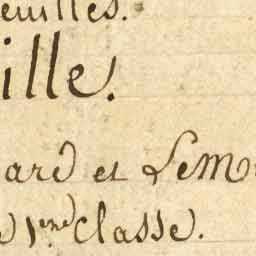 euilles.
ille.
ard et Lem
1ere classe.